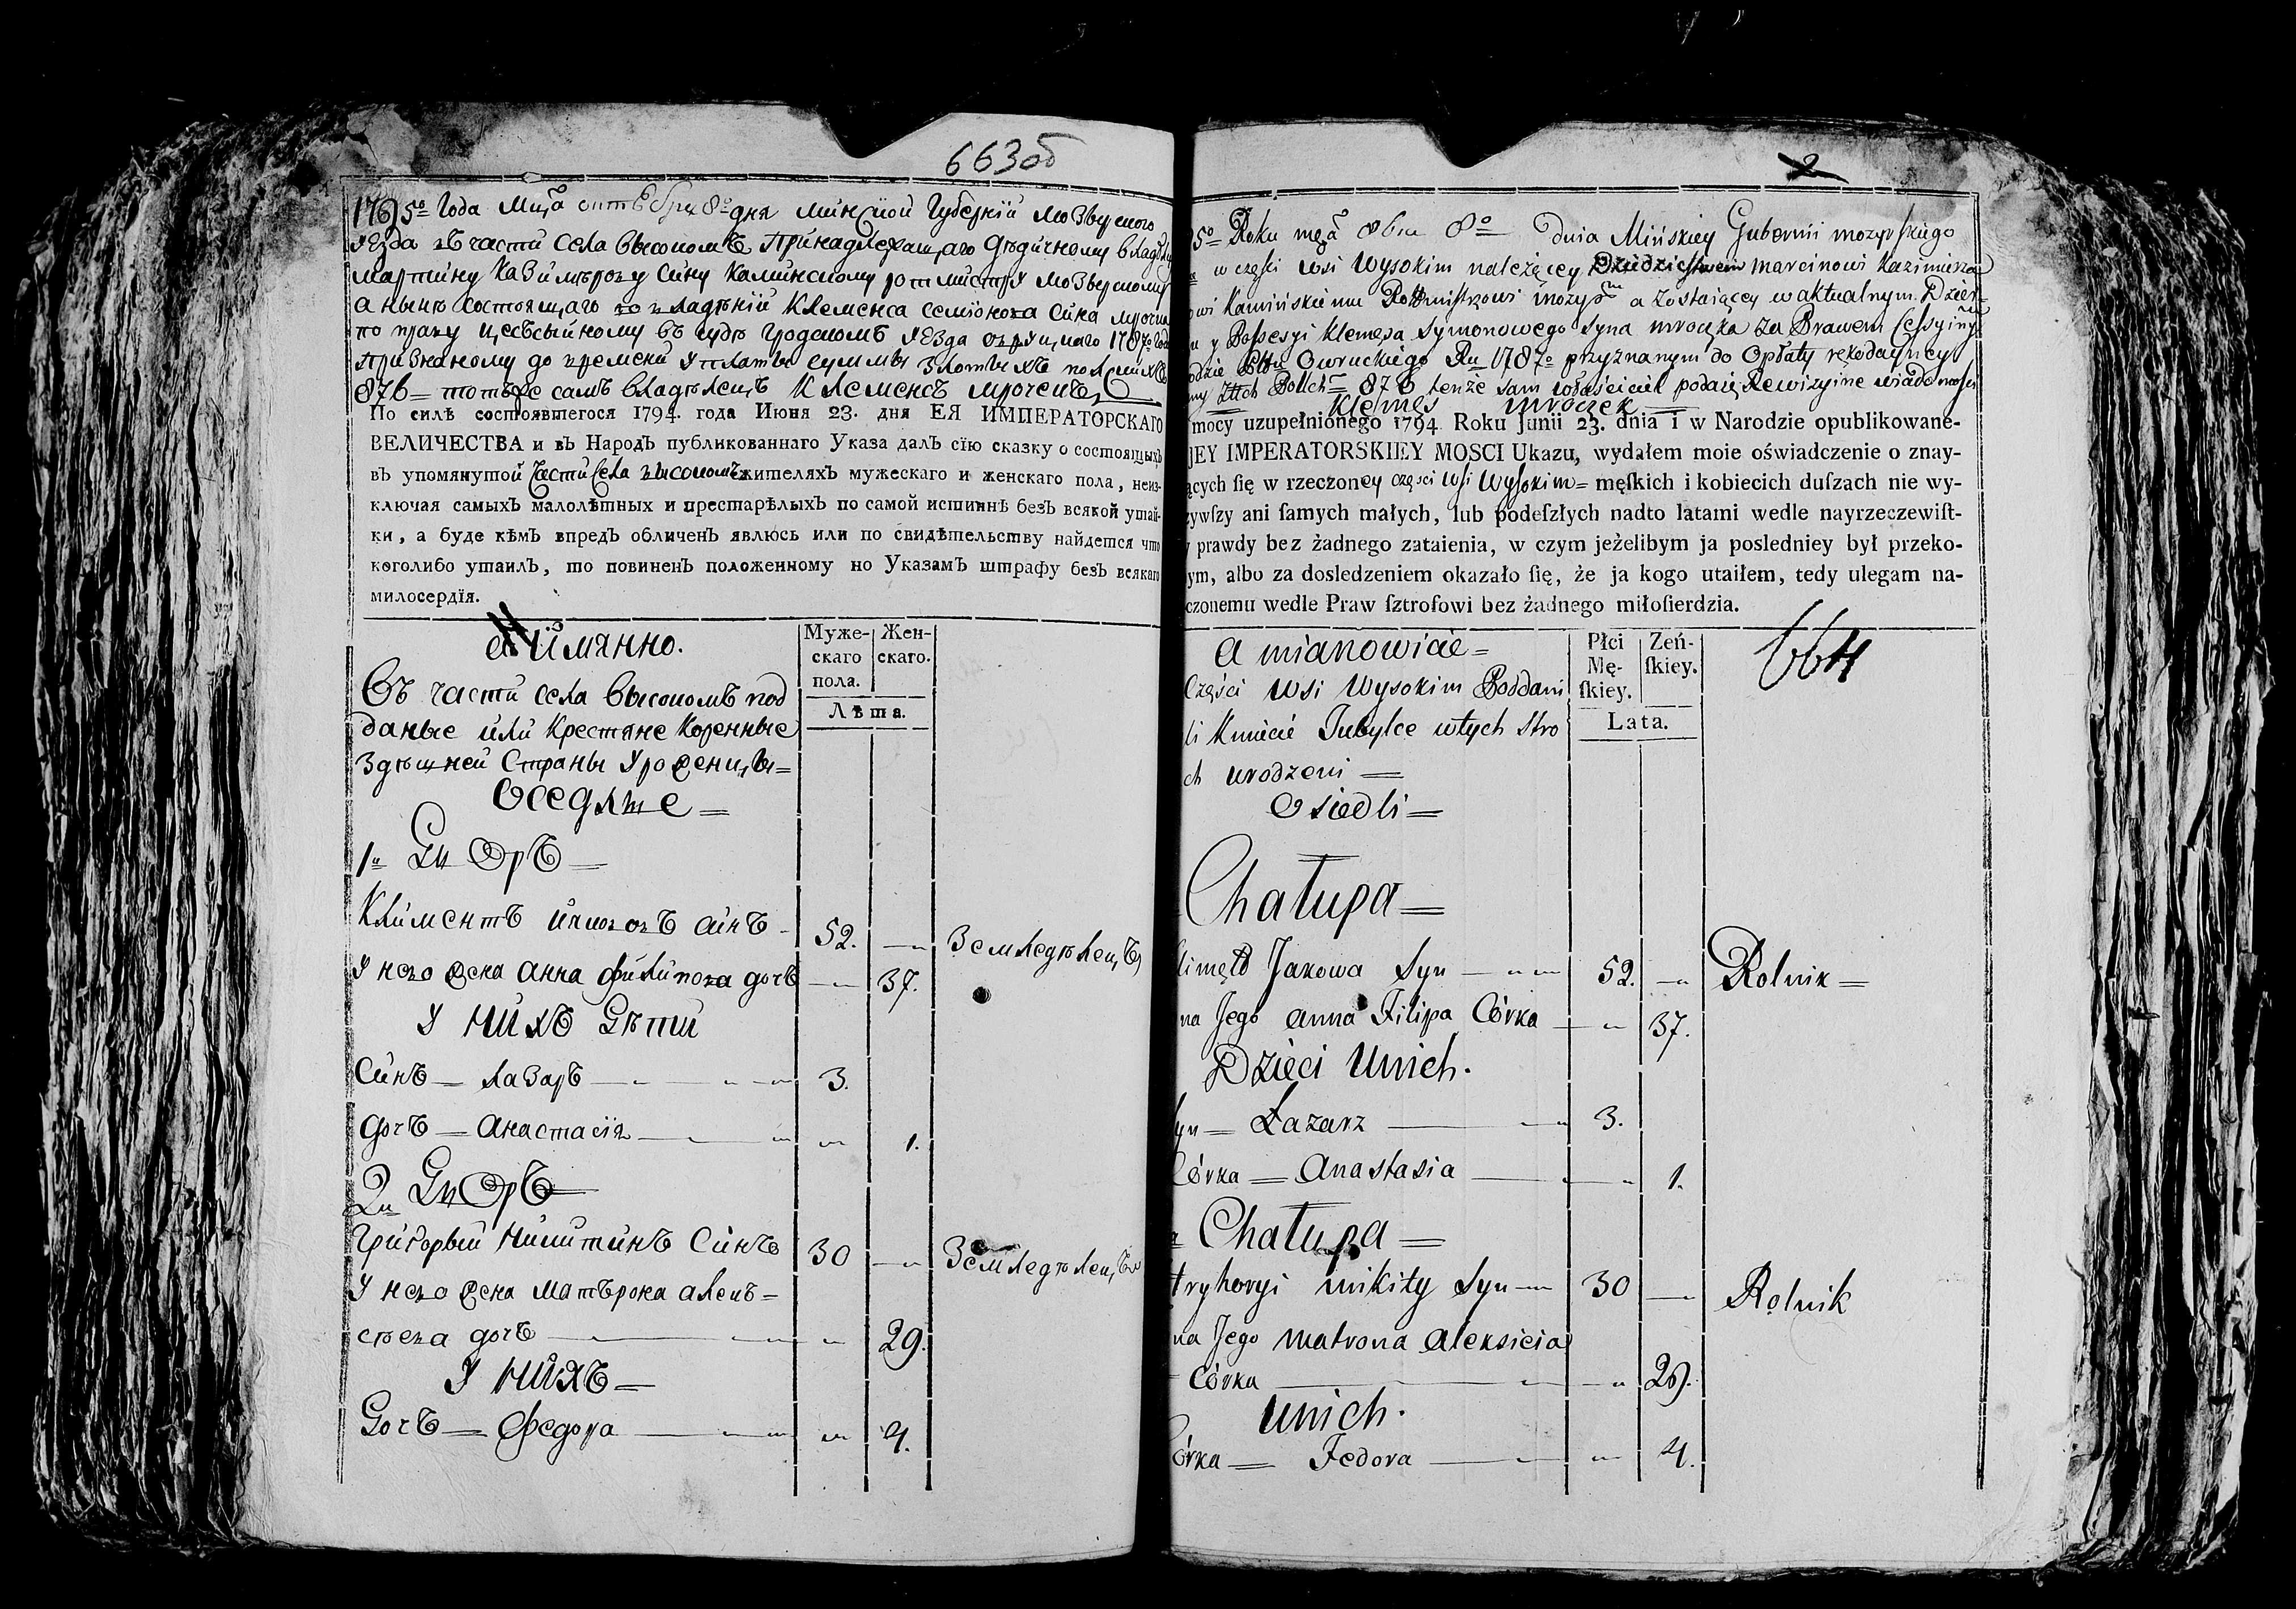 663об
1795го Года Мца октебря 8го дня минской Губернїи мозырского
уезда въ части села высокомъ принадлежащаго дѣдичному владѣльцу
мартину казимѣрову сину каминскому ротмистру мозырскому
а нынѣ состоящаго во владѣнїи Клеменса семіонова сина мрочка
по праву цессыйному въ судѣ гродскомъ уезда овруцкаго 1787го года
признаному до времени уплаты суммы злотыхъ полскихъ
876 = тотъже самъ владѣлецъ Клеменсъ мроченъ
По силѣ состоявшегося 1794. года Июня 23. дня ЕЯ ИМПЕРАТОРСКАГО
ВЕЛИЧЕСТВА и въ Народъ публикованнаго Указа далъ сїю сказку о состоящыхъ
въ упомянутой части села высокомъ жителяхъ мужескаго и женскаго пола, неиз-
ключая самыхъ малолѣтныхъ и престарѣлыхъ по самой истиннѣ безъ всякой утай-
ки, а буде кѣмъ впредъ обличенъ явлюсь или по свидѣтельству найдется что
коголибо утаилъ, то повиненъ положенному но Указамъ штрафу безъ всякаго
милосердїя.
А имянно.
Муже-
скаго
пола.
Жен-
скаго.
Лѣта.
Въ части села высокомъ под
даные или Крестяне Коренные
Здѣшней Страны Уроженцы =
Оседлые =
1й Дворъ =
Климентъ якововъ синъ 52. Земледѣлецъ
У него жена анна филипова дочъ 37.
У нихъ Дѣти
Синъ — лазаръ 3.
дочъ — анастасїя 1.
2й Дворъ
Григорый Никитинъ Синъ 30 Земледѣлецъ
У него жена матърона алекъ =
сѣева дочъ 29.
У нихъ =
Дочъ — федора 4.
2
5o Roku mca 8bra 8o dnia Mińskiey Gubernii mozyrskiego
w części wsi Wysokim należącey Dziedzictwem marcinowi Kazimierzo
owi Kamińskiemu Rottmistrzowi mozyrm a zostaiącey w aktualnym Dzier
y Possesyi Klemęsa Symonowego Syna mroczka za Prawem Cessyinym
odzie Pttu Owruckiego Ru 1787o przyznanym do Opłaty rękodayncy
my złłch Pollch = 876 tenże sam właściciel podaię Rewizyine wiadomości
Klemęs mroczek
mocy uzupełnionego 1794 Roku Junii 23. dnia i w Narodzie opublikowane-
JEY IMPERATORSKIEY MOSCI Ukazu, wydałem moie oświadczenie o znay-
ących ſię w rzeczoney części wsi Wysokim = męſkich i kobiecich duſzach nie wy-
zywſzy ani ſamych małych, lub podeſzłych nadto latami wedle nayrzeczewiſt-
y prawdy bez żadnego zataienia, w czym jeżelibym ja posledniey był przeko-
ym, albo za dosledzeniem okazało ſię, że ja kogo utaiłem, tedy ulegam na-
czonemu wedle Praw ſztrofowi bez żadnego miłoſierdzia.
a mianowicie =
Płci
Mę-
ſkiey.
Zeń-
ſkiey.
Lata.
664
Części wsi Wysokim Poddani
li Kmiecie Tubylce w tych Stro
ch urodzeni —
Osiedli =
Chałupa =
limęt Jakowa Syn 52. Rolnik =
na Jego anna Filipa Córka 37.
Dzieci Unich.
Syn — Łazarz 3.
Córka — Anastasia 1.
Chałupa =
hryhoryi mikity Syn 30 Rolnik
na Jego matrona Alexsieia
Córka 29.
Unich.
órka — Fedora 4.